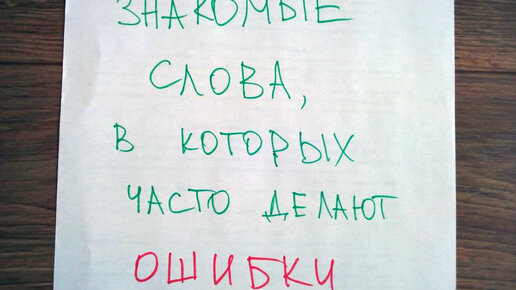 ЗНАКОМЫЕ
СЛОВА,
В КОТОРЫХ
ЧАСТО ДЕЛАЮТ
ОШИБКИ